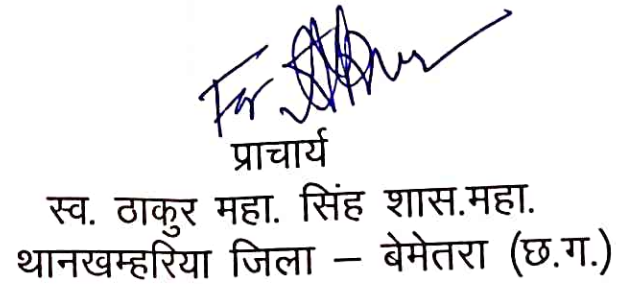 For
प्राचार्य
स्व. ठाकुर महा. सिंह शास.महा.
थानखम्हरिया जिला – बेमेतरा (छ.ग.)